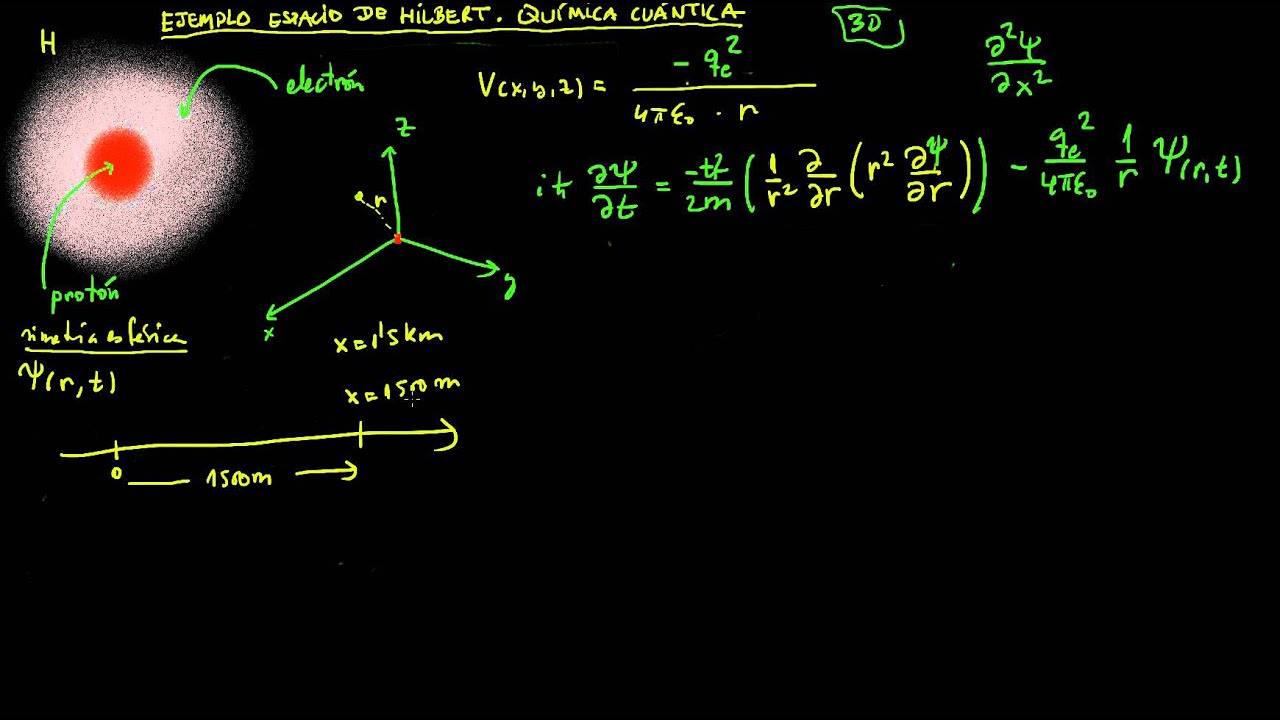 EJEMPLO ESPACIO DE HILBERT. QUÍMICA CUÁNTICA
3D
H
electrón
protón
simetría esférica
Ψ(r,t)
V(x,y,z) = -qe² / 4πε₀ · r
∂²Ψ / ∂x²
iħ ∂Ψ/∂t = -ħ²/2m (1/r² ∂/∂r (r² ∂Ψ/∂r)) - qe²/4πε₀ 1/r Ψ(r,t)
z
r
y
x
x=1'5km
x=1500m
0
1500m